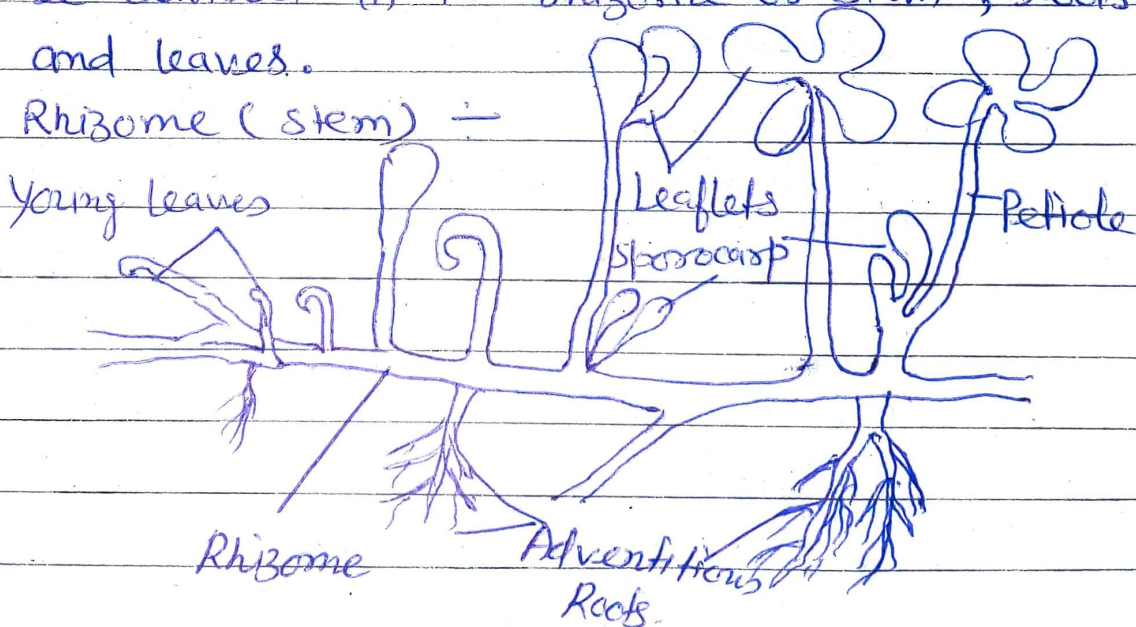 and leaves.
Rhizome (stem) :-
Young leaves
Leaflets
Petiole
Sporocarp
Rhizome
Adventitious
Roots.